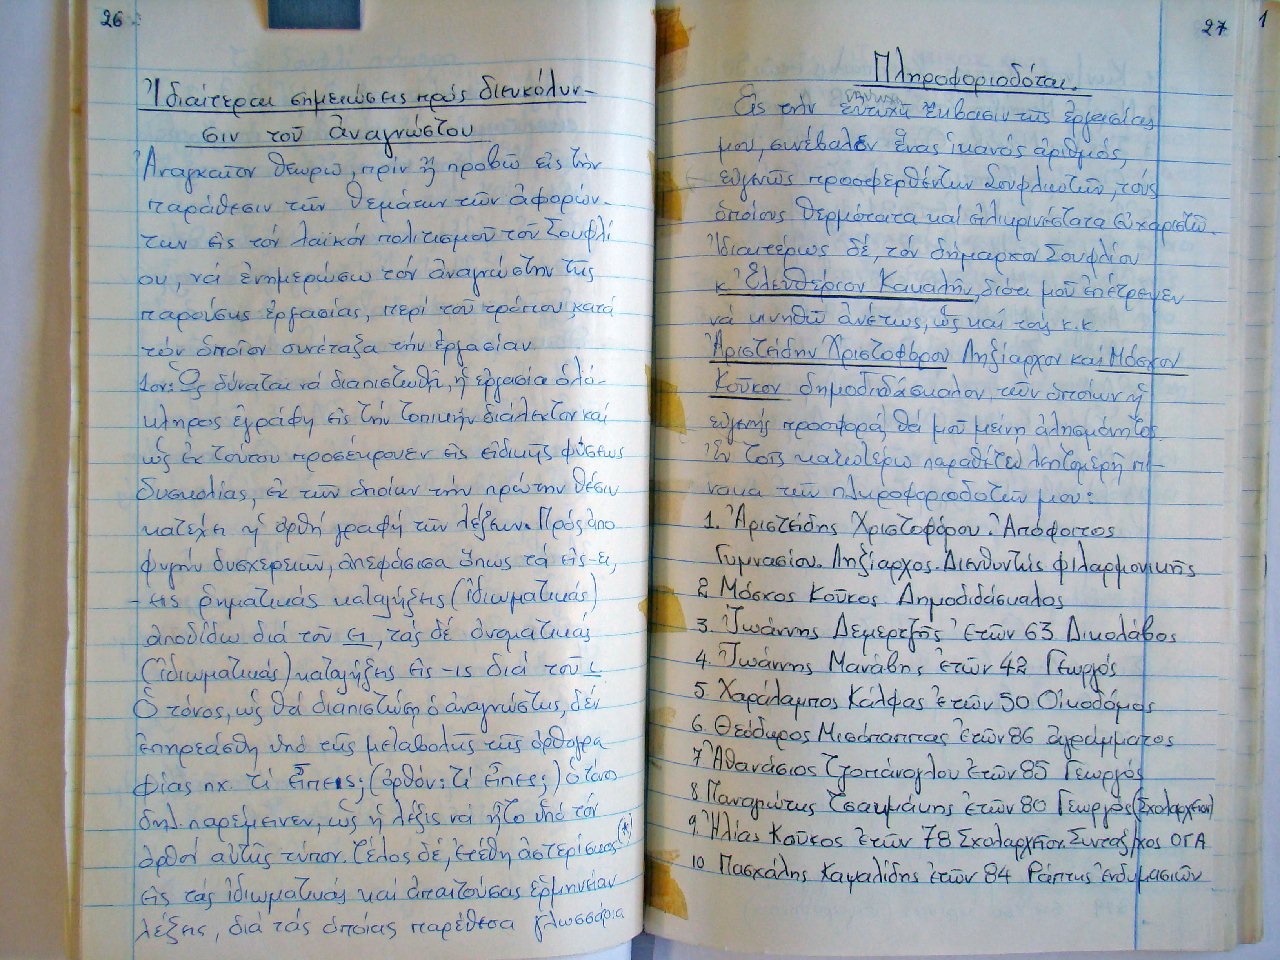 26
Ἰδιαίτεραι σημειώσεις πρός διευκόλυν-
σιν τοῦ ἀναγνώστου
Ἀναγκαῖον θεωρῶ, πρίν ἤ προβῶ εἰς τήν
παράθεσιν τῶν θεμάτων τῶν ἀφορών-
των εἰς τόν λαϊκόν πολιτισμόν τοῦ Σουφλί
ου, νά ἐνημερώσω τόν ἀναγνώστην τῆς
παρούσης ἐργασίας, περί τοῦ τρόπου κατά
τόν ὁποῖον συνέταξα τήν ἐργασίαν.
1ον: Ὡς δύναται νά διαπιστωθῇ, ἡ ἐργασία ὁλό-
κληρος ἐγράφη εἰς τήν τοπικήν διάλεκτον καί
ὡς ἐκ τούτου προσέκρουεν εἰς εἰδικῆς φύσεως
δυσκολίας, ἐκ τῶν ὁποίων τήν πρώτην θέσιν
κατέχει ἡ ὀρθή γραφή τῶν λέξεων. Πρός ἀπο
φυγήν δυσχερειῶν, ἀπεφάσισα ὅπως τά εἰς -ει,
-εις ρηματικάς καταλήξεις (ἰδιωματικάς)
ἀποδίδω διά τοῦ ει, τάς δέ ὀνοματικάς
(ἰδιωματικάς) καταλήξεις εἰς -ις διά τοῦ ι
Ὁ τόνος, ὡς θά διαπιστώσῃ ὁ ἀναγνώστης, δέν
ἐπηρεάσθη ὑπό τῆς μεταβολῆς τῆς ὀρθογρα
φίας πχ. τί εἶπεις; (ὀρθόν: τί εἶπες;) ὁ τόνος
δηλ. παρέμεινεν, ὡς ἡ λέξις νά ἦτο ὑπό τόν
ὀρθόν αὐτῆς τύπον. Τέλος δέ, ἐτέθη ἀστερίσκος (*)
εἰς τάς ἰδιωματικάς καί ἀπαιτούσας ἑρμηνείαν
λέξεις, διά τάς ὁποίας παρέθεσα γλωσσάρια
27
1
Πληροφοριοδόται.
Εἰς τήν εὐτυχῆ ἔκβασιν τῆς ἐργασίας
μου, συνέβαλεν ἕνας ἱκανός ἀριθμός,
εὐγενῶς προσφερθέντων Σουφλιωτῶν, τούς
ὁποίους θερμότατα καί εἰλικρινέστατα εὐχαριστῶ.
Ἰδιαιτέρως δέ, τόν δήμαρχον Σουφλίου
κ. Ἐλευθέριον Κακαλῆν, διότι μοῦ ἐπέτρεψεν
νά κινηθῶ ἀνέτως, ὡς καί τούς κ.κ.
Ἀριστείδην Χριστοφόρου Ληξίαρχον καί Μόσχον
Κοῦκον δημοδιδάσκαλον, τῶν ὁποίων ἡ
εὐγενής προσφορά, θά μοῦ μείνῃ ἀλησμόνητος.
Ἐν τοῖς κατωτέρω παραθέτω λεπτομερῆ πί-
νακα τῶν πληροφοριοδοτῶν μου:
1. Ἀριστείδης Χριστοφόρου. Ἀπόφοιτος
Γυμνασίου. Ληξίαρχος. Διευθυντής φιλαρμονικῆς
2 Μόσχος Κοῦκος Δημοδιδάσκαλος
3. Ἰωάννης Δεμερτζῆς ἐτῶν 63 Δικολάβος
4. Ἰωάννης Μανάβης ἐτῶν 42 Γεωργός
5. Χαράλαμπος Κάλφας ἐτῶν 50 Οἰκοδόμος
6. Θεόδωρος Μισόπαππας ἐτῶν 86 ἀγράμματος
7 Ἀθανάσιος Τζοπάνογλου ἐτῶν 85 Γεωργός
8 Παναγιώτης Τσακμάκης ἐτῶν 80 Γεωργός (Σχολαρχεῖον)
9. Ἠλίας Κοῦκος ἐτῶν 78 Σχολαρχεῖον. Συνταξ/χος ΟΓΑ
10 Πασχάλης Καψαλίδης ἐτῶν 84 Ράπτης ἐνδυμασιῶν